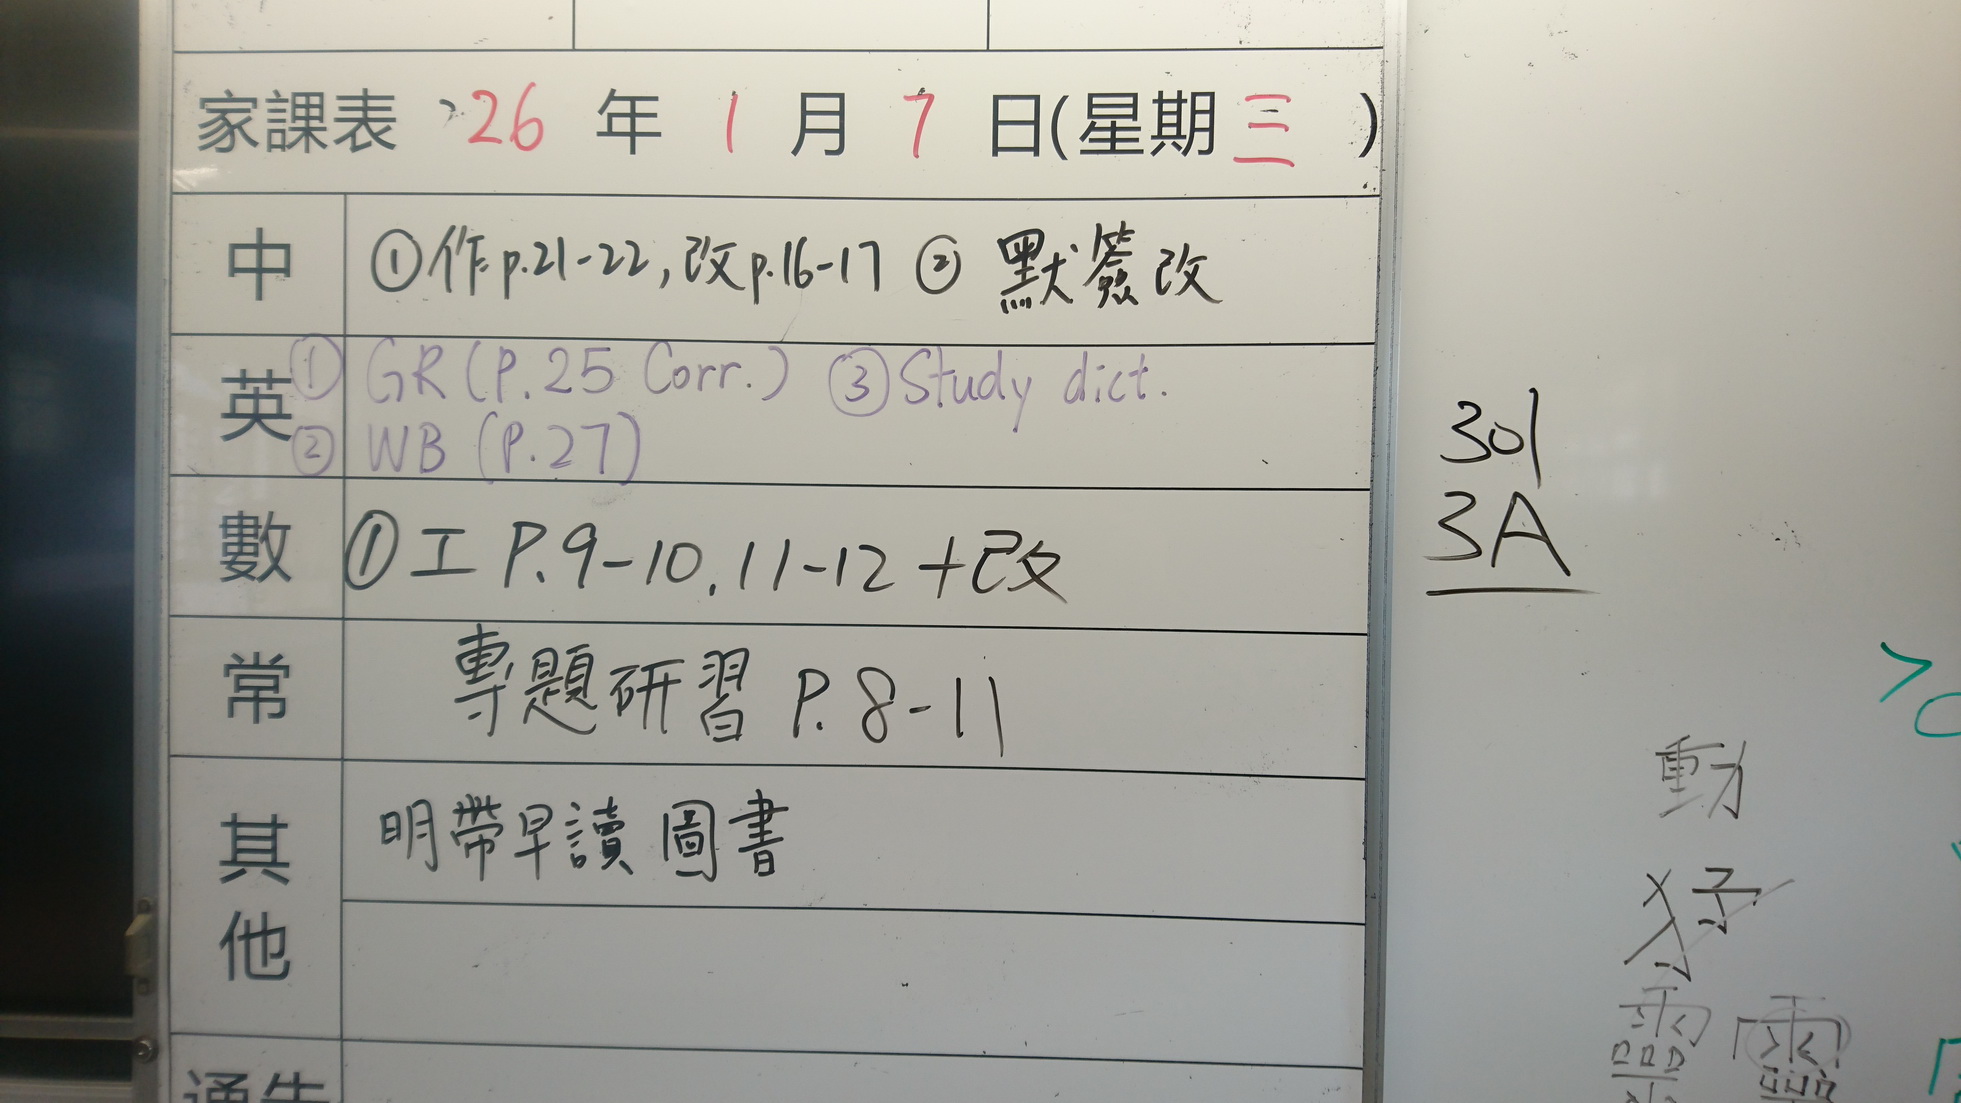 家課表 26 年 1 月 7 日(星期三)
中 ①作p.21-22,改p.16-17 ② 默簽改
英 ① GR (P.25 Corr.) ③ Study dict.
② WB (P.27)
數 ①工 P.9-10,11-12 +改
常 專題研習 P.8-11
其他 明帶早讀圖書
通告
301
3A
動